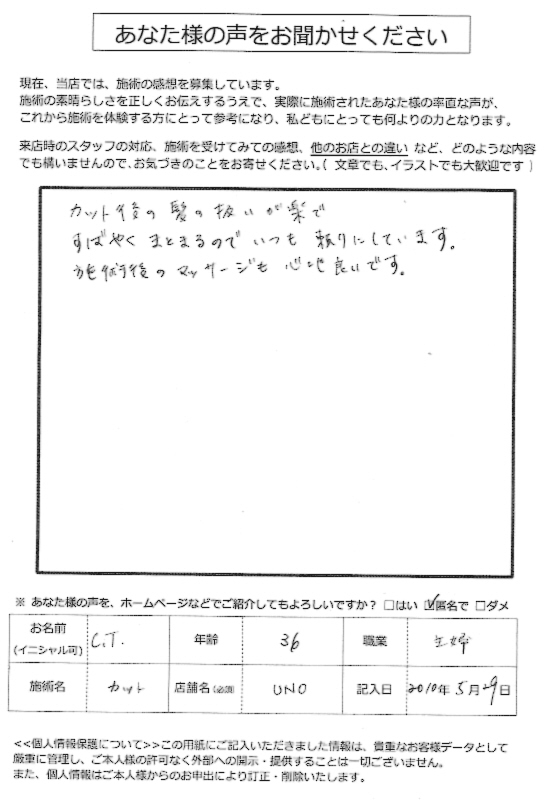 あなた様の声をお聞かせください
現在、当店では、施術の感想を募集しています。
施術の素晴らしさを正しくお伝えするうえで、実際に施術されたあなた様の率直な声が、
これから施術を体験する方にとって参考になり、私どもにとっても何よりの力となります。
来店時のスタッフの対応、施術を受けてみての感想、他のお店との違い など、どのような内容
でも構いませんので、お気づきのことをお寄せください。( 文章でも、イラストでも大歓迎です )
カット後の髪の扱いが楽で
すばやくまとまるのでいつも頼りにしています。
施術後のマッサージも心地良いです。
※ あなた様の声を、ホームページなどでご紹介してもよろしいですか？ □はい ☑匿名で □ダメ
お名前 (イニシャル可) C.T. 年齢 36 職業 主婦
施術名 カット 店舗名 (必須) UNO 記入日 2010年 5月 29日
<<個人情報保護について>>この用紙にご記入いただきました情報は、貴重なお客様データとして
厳重に管理し、ご本人様の許可なく外部への開示・提供することは一切ございません。
また、個人情報はご本人様からのお申出により訂正・削除いたします。